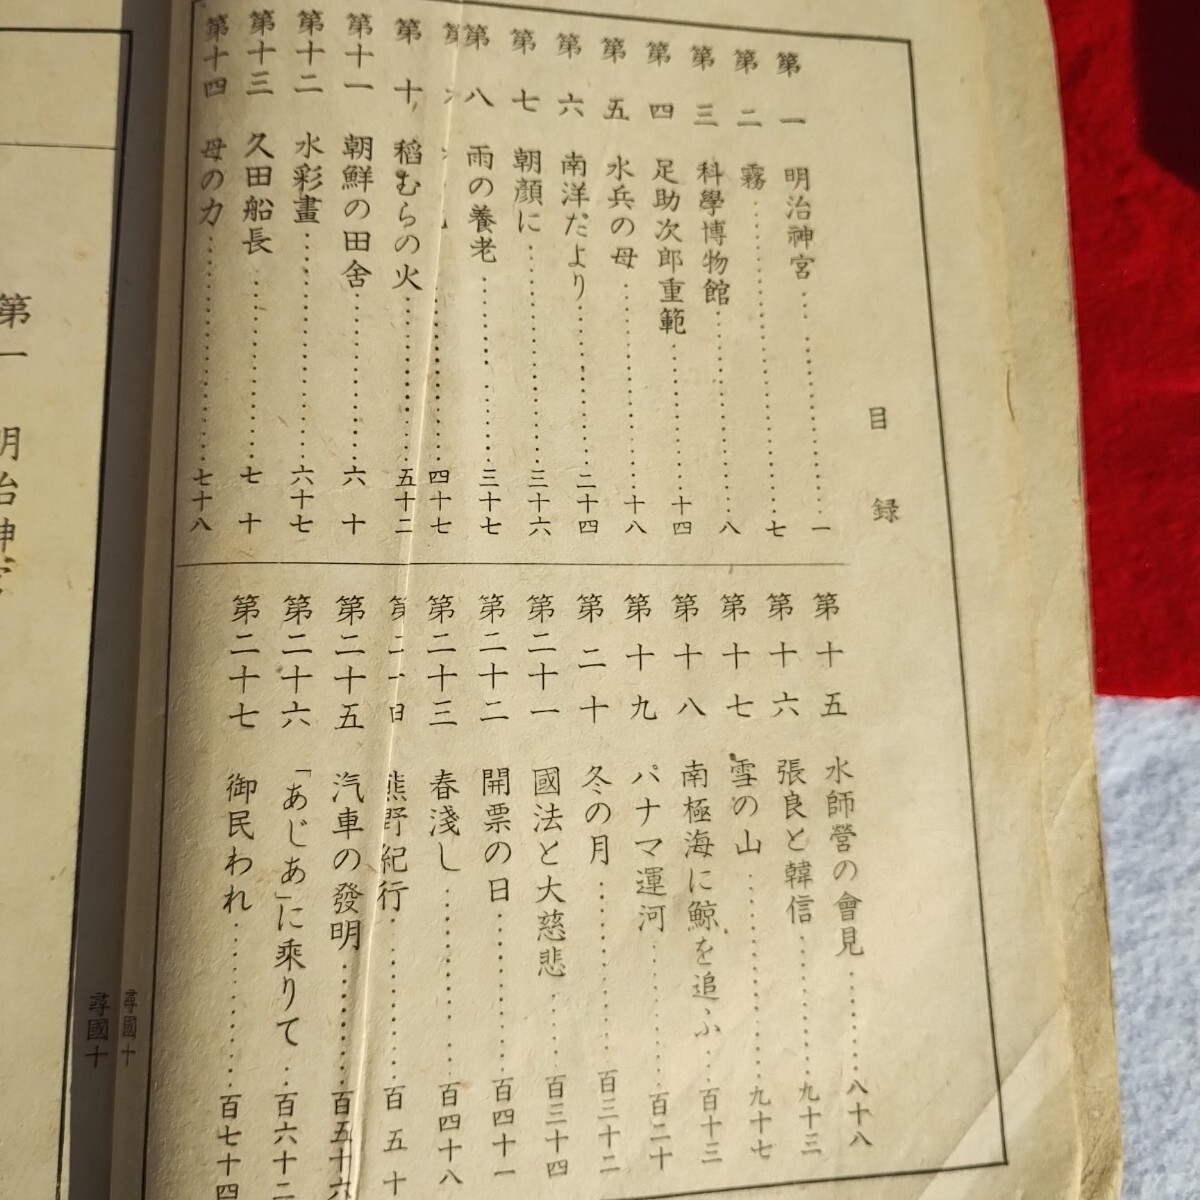 目録
第一 明治神宮 一
第二 霧 七
第三 科學博物館 八
第四 足助次郎重範 十四
第五 水兵の母 十八
第六 南洋だより 二十四
第七 朝顔に 三十六
第八 雨の養老 三十七
第 四十七
第十 稻むらの火 五十二
第十一 朝鮮の田舍 六十
第十二 水彩畫 六十七
第十三 久田船長 七十
第十四 母の力 七十八
第十五 水師營の會見 八十八
第十六 張良と韓信 九十三
第十七 雪の山 九十七
第十八 南極海に鯨を追ふ 百十三
第十九 パナマ運河 百二十
第二十 冬の月 百三十二
第二十一 國法と大慈悲 百三十四
第二十二 開票の日 百四十一
第二十三 春淺し 百四十八
熊野紀行 百五十
第二十五 汽車の發明 百五十六
第二十六 「あじあ」に乘りて 百六十二
第二十七 御民われ 百七十四
尋國十
尋國十
第一 明治神宮